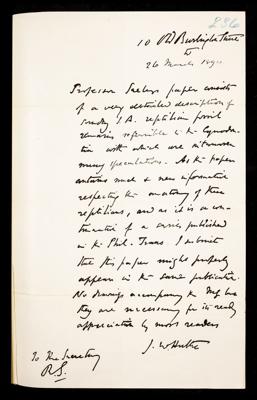 236
10 Old Burlington Street
W
26 March 1894
Professor Seeley's paper consists
of a very detailed description of
sundry S.A. reptilian fossil
remains referrible to the Cynodon-
tia with which are interwoven
many speculations. As the paper
contains much & new information
respecting the anatomy of these
reptilians, and as it is a con-
tinuation of a series published
in the Phil. Trans. I submit
that this paper might properly
appear in the same publication.
No drawings accompany the MS but
they are necessary for its ready
appreciation by most readers
J. W Hulke
To the Secretary
R.S.